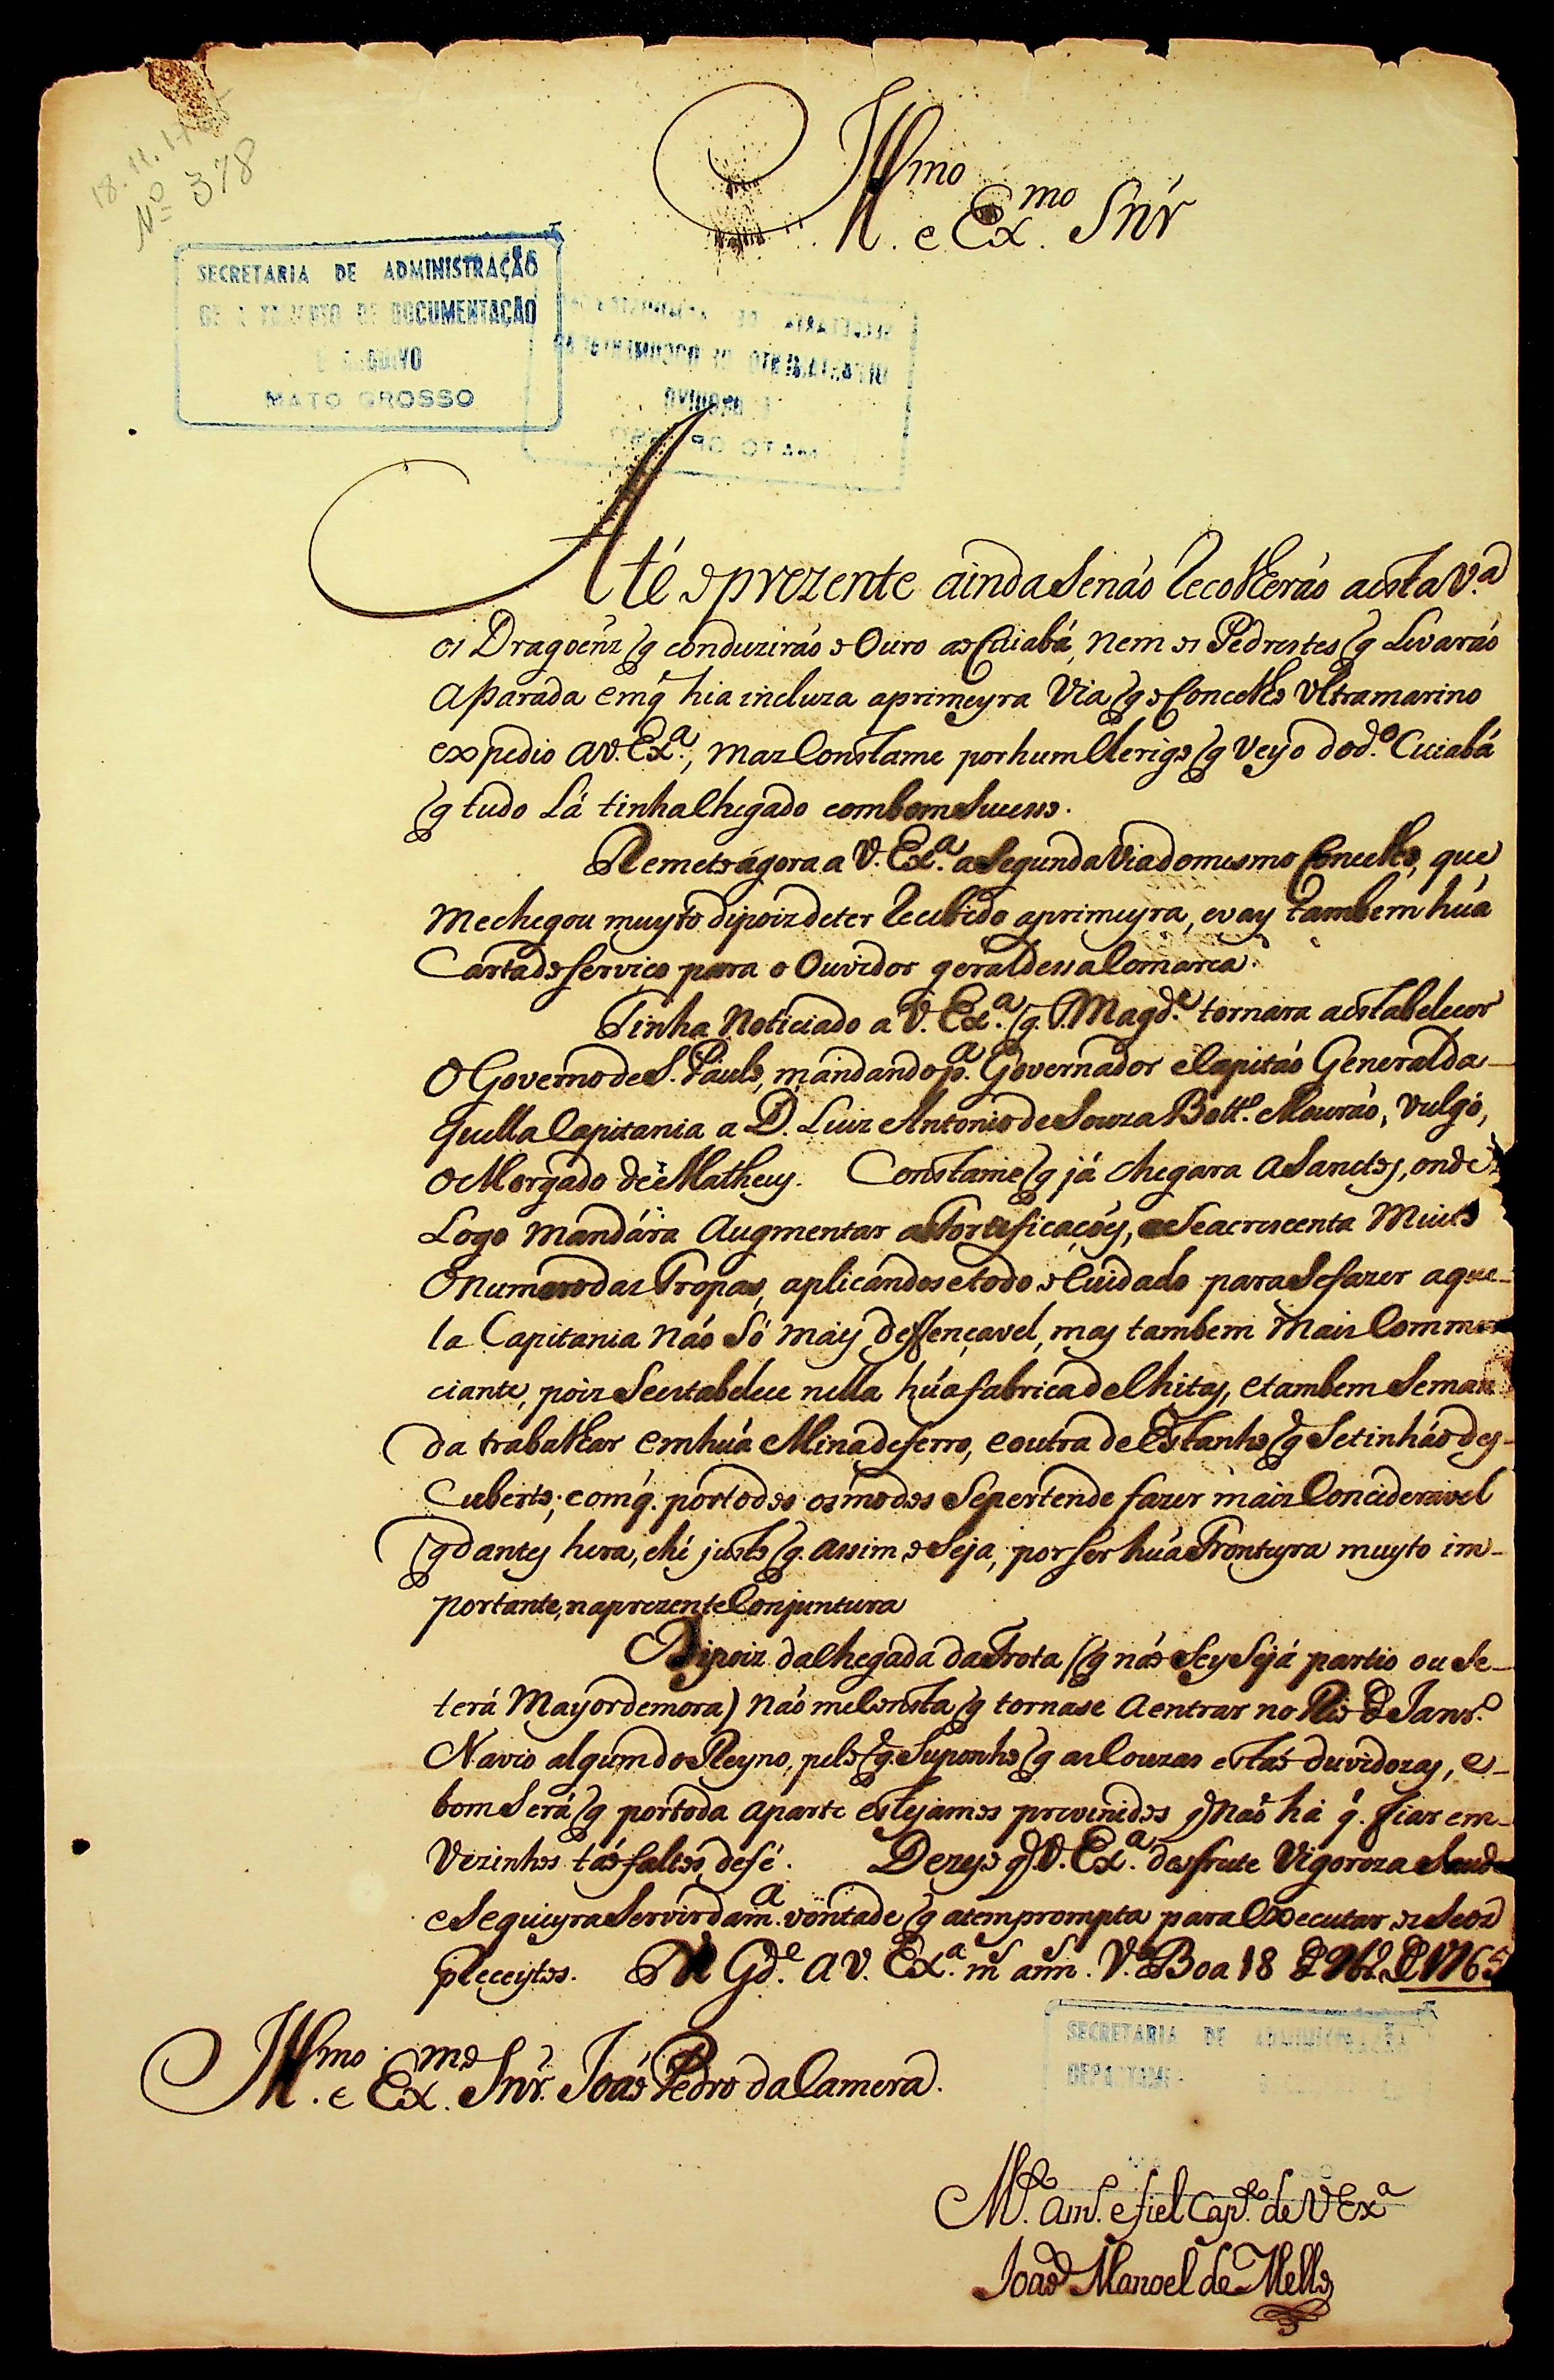 18.11.1765
Nº 378
Illmo. e Exmo. Snr̃
SECRETARIA DE ADMINISTRAÇÃO
DE DOCUMENTAÇÃO
E ARQUIVO
MATO GROSSO
Até o prezente ainda senáo recolheráo a esta V.a
os Dragoēnz q̃ conduziráo o Ouro ao Cuiabá, nem os Pedrestes q̃ Levaráo
a Parada em q̃ hia incluza a primeyra Via q̃ o Concelho Ultramarino
expedio a V. Ex.a, maz constame por hum Clerigo q̃ veyo do d.o Cuiabá
q̃ tudo Lá tinha chegado com bom Sucesso.
Remeto ágora a V. Ex.a a Segunda Via do mesmo Concelho, que
me chegou muyto dipoiz de ter recebido a primeyra, e vay tambem húa
Carta do Serviço para o Ouvidor geral dessa Comarca.
Tinha Noticiado a V. Ex.a q̃ S. Magd.e tornara a estabelecer
O Governo de S. Paulo, mandando p.a Governador e Capitáo General da-
quella Capitania a D. Luiz Antonio de Souza Bott.o Mouráo, Vulgó,
O Morgado de Matheuz. Constame q̃ já chegara a Sanctos, onde
Logo mandára Augmentar as Fortificaçóes, e Se acrescenta Muito
O numero das Tropas, aplicandose todo o Cuidado para Se fazer aque-
la Capitania náo Só mais deffençavel, mas tambem mais Commer
ciante, pois Se establece nella húa fabrica de Chitas, e tambem Se man
da trabalhar em húa Mina de ferro, e outra de Estanho q̃ Se tinháo des-
Cuberto; com q̃. por todos os modos Se pertende fazer mais Conciderável
q̃ d antes hera, e hé justo q̃. assim o Seja, por Ser húa Fronteyra muyto im-
portante, na prezente Conjuntura
Dipois da chegada da Frota (q̃ náo Sey Se já partio ou Se-
terá Mayor demora) náo me consta q̃ tornase a entrar no Rio de Janr.o
Navio algum do Reyno, pelo q̃. Suponho q̃ as Couzas estáo duvidozas, e-
bom Será q̃ por toda a parte estejamos prevenidos q̃ náo há q̃. fiar em-
Vezinhos táo faltos de fé. Dezejo q̃ V. Ex.a desfrute Vigoroza Saude
e Se quieyra Servir da m.a vontade q̃ a tem prompta para executar os Seos
Preceytos. Ds Gd.e a V. Ex.a ms ann.s V.a Boa 18 de 9br.o de 1765
Illmo. e Exmo. Snr̃. Joáo Pedro da Camera.
SECRETARIA DE ADMINISTRAÇÃO
M.to am.o e fiel Cap.o de V Ex.a
Joáo Manoel de Mello